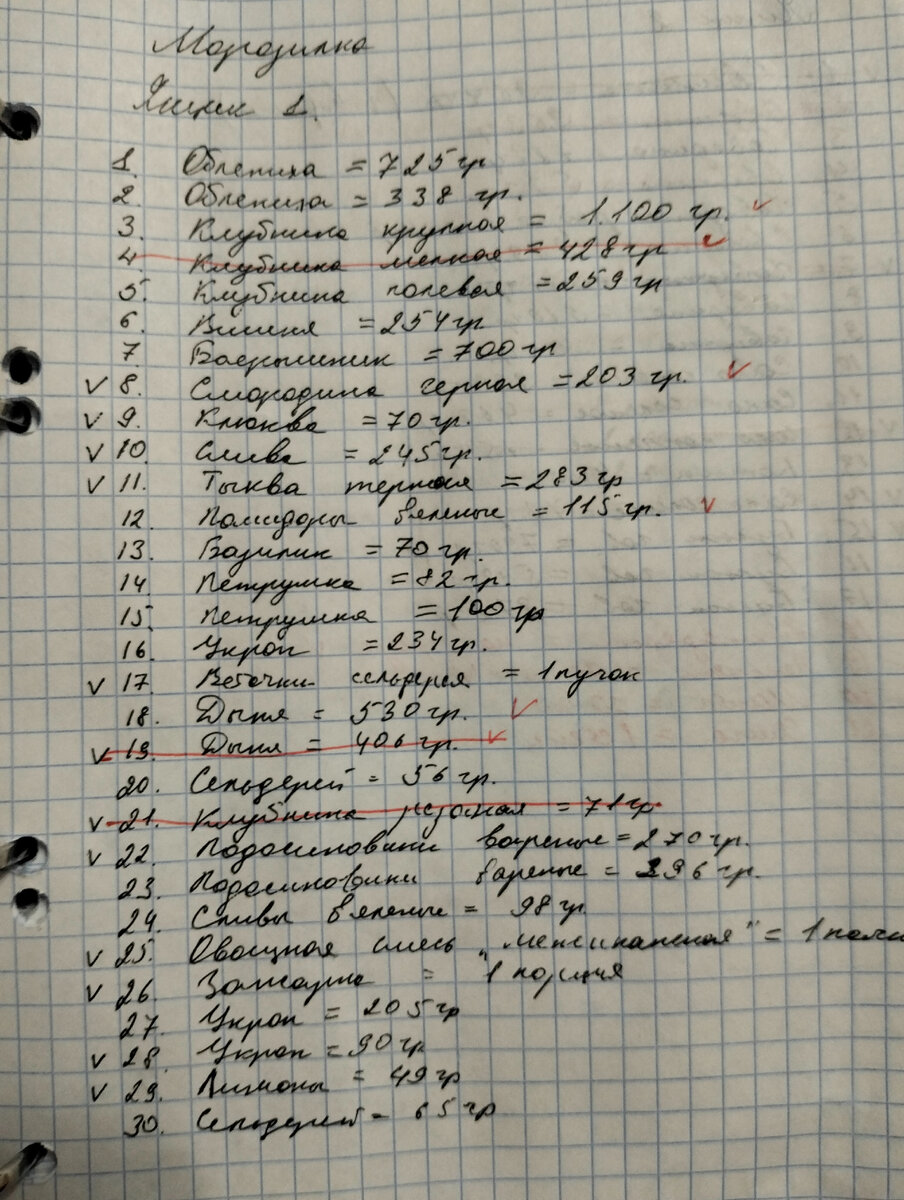 Морозилка
Ящик 1.
1. Облепиха = 725 гр
2. Облепиха = 338 гр.
3. Клубника крупная = 1.100 гр. ✓
4 Клубника мелкая = 428 гр ✓
5. Клубника полевая = 259 гр
6. Вишня = 254 гр
7 Боярышник = 700 гр
V 8. Смородина черная = 203 гр. ✓
V 9. Клюква = 70 гр.
V 10. Слива = 245 гр.
V 11. Тыква тертая = 283 гр
12. Помидоры вяленые = 115 гр. ✓
13. Базилик = 70 гр.
14 Петрушка = 82 гр.
15. Петрушка = 100 гр
16. Укроп = 234 гр.
V 17. Веточки сельдерея = 1 пучок
18. Дыня = 530 гр. ✓
V 19. Дыня = 406 гр. ✓
20. Сельдерей = 56 гр.
V 21. Клубника резаная = 71 гр
V 22. Подосиновики вареные = 270 гр.
23. Подосиновики вареные = 296 гр.
24. Сливы вяленые = 98 гр.
V 25. Овощная смесь „мексиканская" = 1
V 26. Зажарка = 1 порция
27. Укроп = 205 гр
V 28. Укроп = 90 гр
V 29. Лимоны = 49 гр
30. Сельдерей = 65 гр